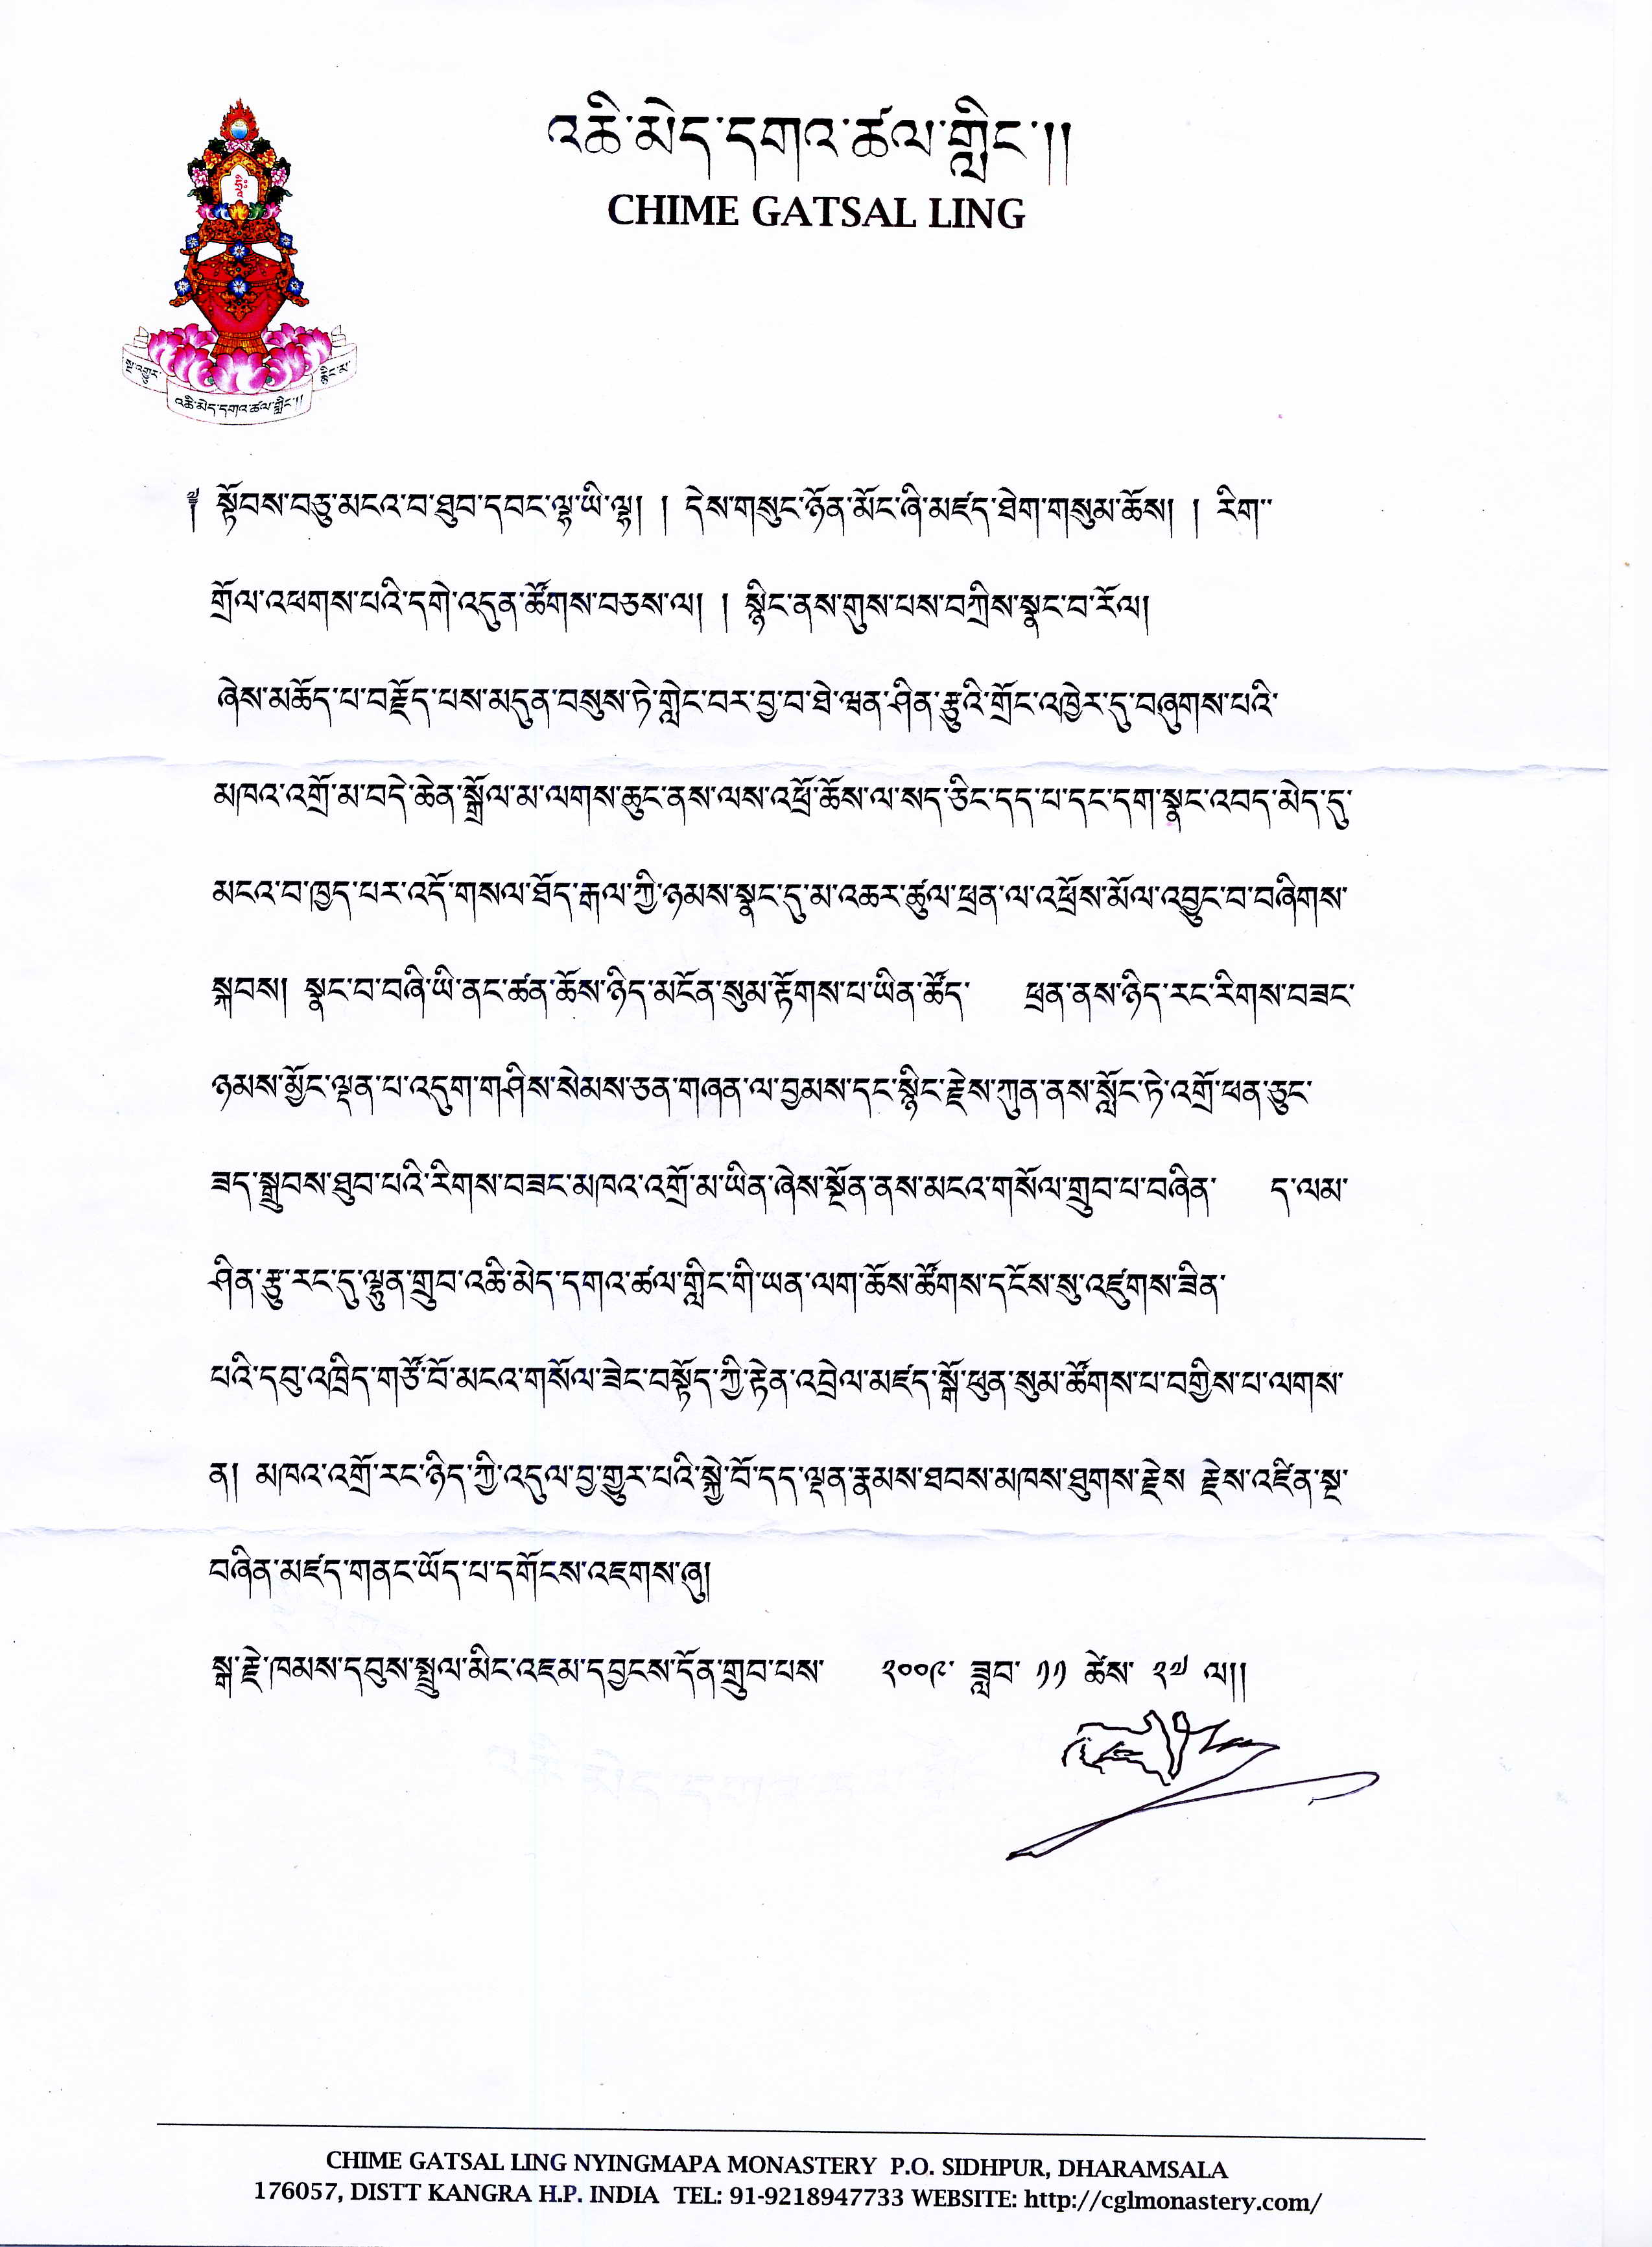 འཆི་མེད་དགའ་ཚལ་གླིང་།།
CHIME GATSAL LING
སྔ་འགྱུར་ རྙིང་མ་
འཆི་མེད་དགའ་ཚལ་གླིང་།།
༈ སྟོབས་བཅུ་མངའ་བ་ཐུབ་དབང་ལྷ་ཡི་ལྷ། ། དེས་གསུང་ཉོན་མོང་ཞི་མཛད་ཐེག་གསུམ་ཆོས། ། རིག་
གྲོལ་འཕགས་པའི་དགེ་འདུན་ཚོགས་བཅས་ལ། ། སྙིང་ནས་གུས་པས་བཀྲིས་སྣང་བ་རོལ།
ཞེས་མཆོད་པ་བརྗོད་པས་མདུན་བསུས་ཏེ་གླེང་བར་བྱ་བ་ཐེ་ཝན་ཤིན་རྩུའི་གྲོང་འཁྱེར་དུ་བཞུགས་པའི་
མཁའ་འགྲོ་མ་བདེ་ཆེན་སྒྲོལ་མ་ལགས་ཆུང་ནས་ལས་འཕྲོ་ཆོས་ལ་སད་ཅིང་དད་པ་དང་དག་སྣང་འབད་མེད་དུ་
མངའ་བ་ཁྱད་པར་འདོ་གསལ་ཐོད་རྒལ་ཀྱི་ཉམས་སྣང་དུ་མ་འཆར་ཚུལ་ཕྲན་ལ་འཕྲོས་མོལ་འབྱུང་བ་བཞིགས་
སྐབས། སྣང་བ་བཞི་ཡི་ནང་ཚན་ཆོས་ཉིད་མངོན་སུམ་རྟོགས་པ་ཡིན་ཚོད་ ཕྲན་ནས་ཉིད་རང་རིགས་བཟང་
ཉམས་མྱོང་ལྡན་པ་འདུག་གཤིས་སེམས་ཅན་གཞན་ལ་བྱམས་དང་སྙིང་རྗེས་ཀུན་ནས་སློང་ཏེ་འགྲོ་ཕན་ཅུང་
ཟད་སྒྲུབས་ཐུབ་པའི་རིགས་བཟང་མཁའ་འགྲོ་མ་ཡིན་ཞེས་སྔོན་ནས་མངའ་གསོལ་གྲུབ་པ་བཞིན་ ད་ལམ་
ཤིན་རྩུ་རང་དུ་ལྷུན་གྲུབ་འཆི་མེད་དགའ་ཚལ་གླིང་གི་ཡན་ལག་ཆོས་ཚོགས་དངོས་སུ་འཛུགས་ཟིན་
པའི་དབུ་འཁྲིད་གཙོ་བོ་མངའ་གསོལ་ཟེང་བསྟོད་ཀྱི་རྟེན་འབྲེལ་མཛད་སྒོ་ཕུན་སུམ་ཚོགས་པ་བགྱིས་པ་ལགས་
ན། མཁའ་འགྲོ་རང་ཉིད་ཀྱི་འདུལ་བྱ་གྱུར་པའི་སྐྱེ་བོ་དད་ལྡན་རྣམས་ཐབས་མཁས་ཐུགས་རྗེས རྗེས་འཛིན་སྔ་
བཞིན་མཛད་གནང་ཡོད་པ་དགོངས་འཇགས་ཞུ།
སྒ་རྗེ་ཁམས་དབུས་སྤྲུལ་མིང་འཇམ་དབྱངས་དོན་གྲུབ་པས་ ༢༠༠༩་ ཟླབ་ ༡༡ ཚེས་ ༢༧ ལ།།
CHIME GATSAL LING NYINGMAPA MONASTERY P.O. SIDHPUR, DHARAMSALA
176057, DISTT KANGRA H.P. INDIA TEL: 91-9218947733 WEBSITE: http://cglmonastery.com/